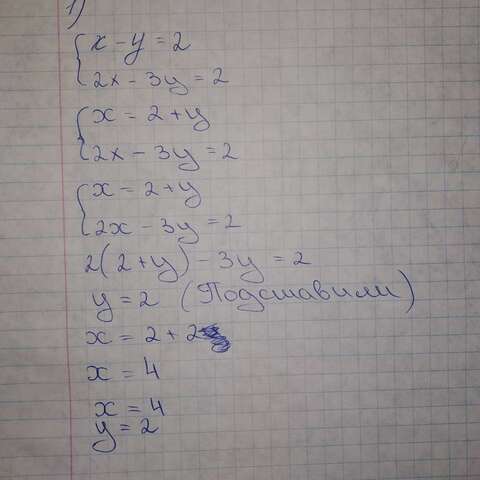 1)
x - y = 2
2x - 3y = 2
x = 2 + y
2x - 3y = 2
x = 2 + y
2x - 3y = 2
2(2+y) - 3y = 2
y = 2 (Подставили)
x = 2 + 2
x = 4
x = 4
y = 2